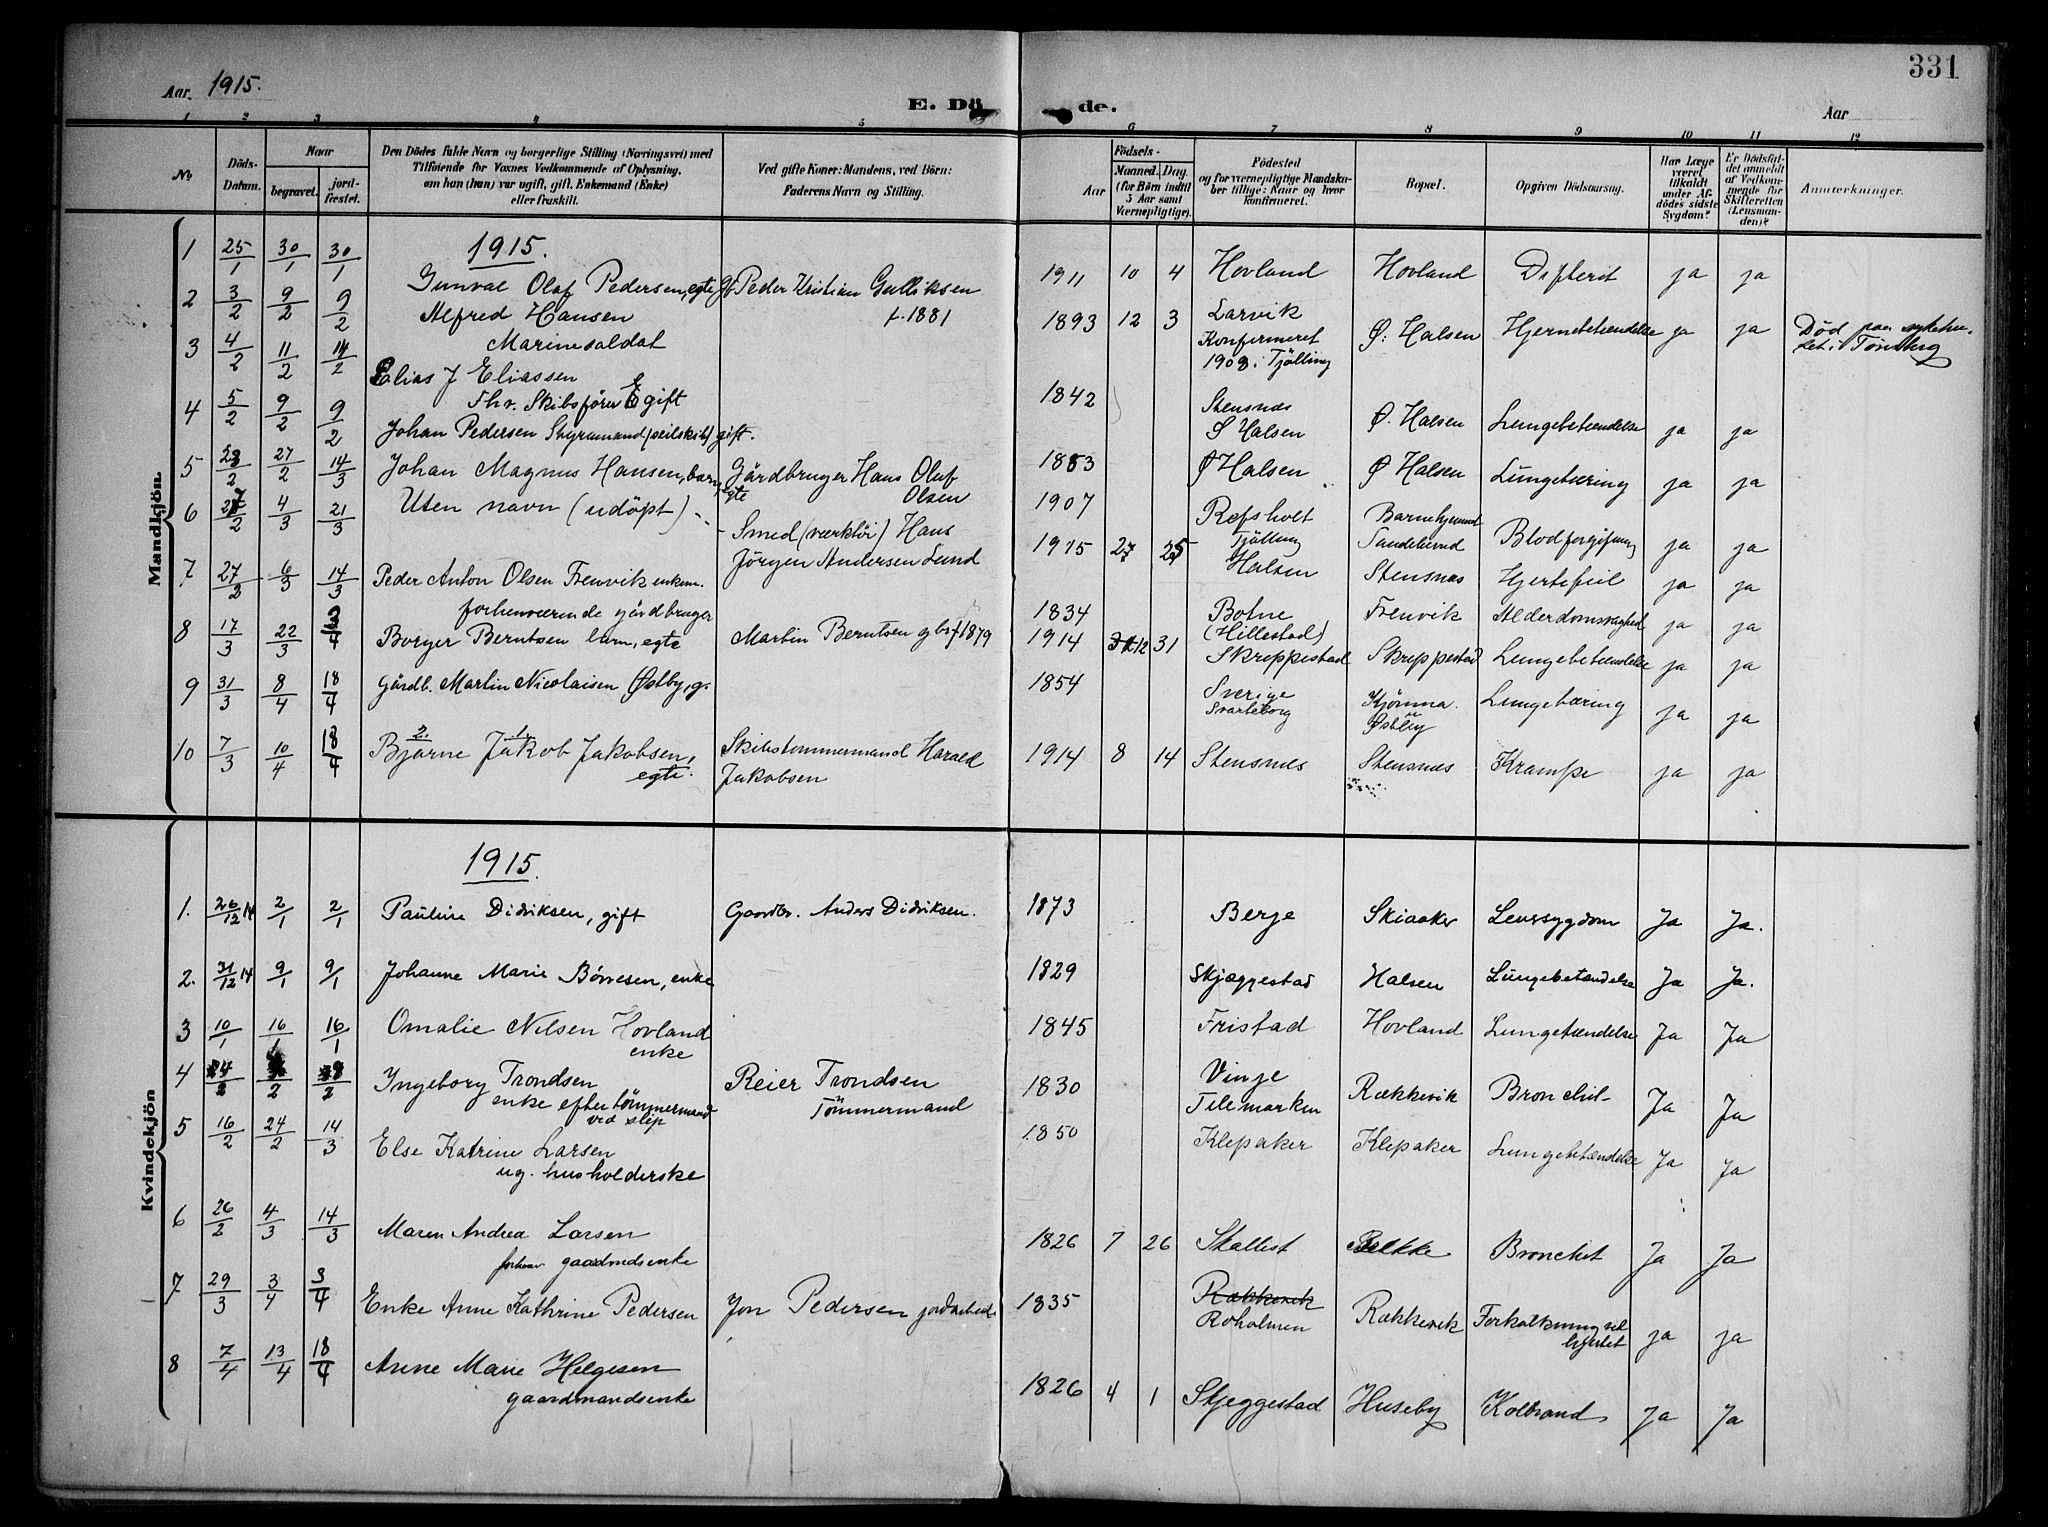 331
Aar 1915.
E. Döde.
Aar
1 2 3 4 5 6 7 8 9 10 11 12
No.
Döds-Datum.
Naar
begravet.
jord-fæstet.
Den Dödes fulde Navn og borgerlige Stilling (Næringsvei) med
Tilföiende for Voxnes Vedkommende af Oplysning,
om han (hun) var ugift, gift, Enkemand (Enke)
eller fraskilt.
Ved gifte Koner: Mandens, ved Börn:
Faderens Navn og Stilling.
Födsels-
Aar
Maaned.
Dag
(for Börn indtil
5 Aar samt
Værnepligtige).
Födested
og for værnepligtige Mandska-
ber tillige: Naar og hvor
konfirmeret.
Bopæl.
Opgiven Dödsaarsag.
Har Læge
været
tilkaldt
under Af-
dödes sidste
Sygdom?
Er Dödsfal-
det anmeldt
af Vedkom-
mende for
Skifteretten
(Lensman-
den)?
Anmerkninger.
Mandkjön.
1915.
1 25/1 30/1 30/1 Gunval Olaf Pedersen, egte Gb Peder Kristian Gulliksen f. 1881 1911 10 4 Hovland Hovland Difterit ja ja
2 3/2 9/2 9/2 Alfred Hansen
Marinesoldat 1893 12 3 Larvik
Konfirmeret
1908 i Tjölling Ø. Halsen Hjernebetændelse ja ja Död paa
i Tönsberg
3 4/2 11/2 14/2 Elias J Eliassen
Fhv. Skibsförer gift 1842 Stensnæs
S Halsen Ø. Halsen Lungebetændelse ja ja
4 5/2 9/2 9/2 Johan Pedersen Styrmand (seilskib) gift. 1883 Ø Halsen Ø Halsen Lungetæring ja ja
5 23/2 27/2 14/3 Johan Magnus Hansen, barn, egte Gårdbruger Hans Oluf
Olsen 1907 Refsholt
Tjölling Barnehjemmet
Sandelund Blodforgiftning ja ja
6 27/2 4/3 21/3 Uten navn (udöpt) Smed (værktöi) Hans
Jörgen Andersen Lund 1915 2 25 Halsen Stensnæs Hjertefeil ja ja
7 27/2 6/3 14/3 Peder Anton Olsen Trenvik enkem.
forhenværende gårdbruger 1834 Botne
(Hillestad) Trenvik Alderdomssvaghed ja ja
8 17/3 22/3 3/4 Borger Berntsen barn, egte Martin Berntsen gbr f 1879 1914 12 31 Skreppestad Skreppestad Lungebetændelse ja ja
9 31/3 8/4 18/4 Gårdb. Martin Nicolaisen Østby, g. 1854 Sverige
Svarteborg Kjömna
Østby Lungetæring ja ja
10 7/3 10/4 18/4 Bjarne Jakob Jakobsen,
egte. Skibstømmermand Harald
Jakobsen 1914 8 14 Stensnæs Stensnæs Krampe ja ja
Kvindekjön
1915.
1. 26/12 14 2/1 2/1 Pauline Didriksen, gift Gaardbr. Anders Didriksen. 1873 Berge Skiaaker Leversygdom Ja Ja.
2. 31/12 14 9/1 9/1 Johanne Marie Børresen, enke 1829 Skjæggestad Halsen Lungebetændelse Ja Ja.
3 10/1 16/1 16/1 Omalie Nilsen Hovland
enke 1845 Fristad Hovland Lungebetændelse Ja Ja
4 Ingeborg Trondsen
enke efter tömmermand
ved slip Reier Trondsen
Tömmermand 1830 Vinje
Telemarken Rækkevik Bronchit Ja Ja
5 16/2 24/2 14/3 Else Katrine Larsen
ug. husholderske 1850 Klepaker Klepaker Lungebetændelse Ja Ja
6 26/2 4/3 14/3 Maren Andrea Larsen
forhenv gaardmdsenke 1826 7 26 Skallist Bakke Bronchit Ja Ja
7 29/3 3/4 3/4 Enke Anne Kathrine Pedersen Jon Pedersen jordarbeid. 1835 Rækkevik
Roholmen Rækkevik Forkalkning ved
hjertet ja ja
8 7/4 13/4 18/4 Anne Marie Helgesen
gaardmandsenke 1826 4 1 Skjeggestad Huseby Kolbrand Ja Ja